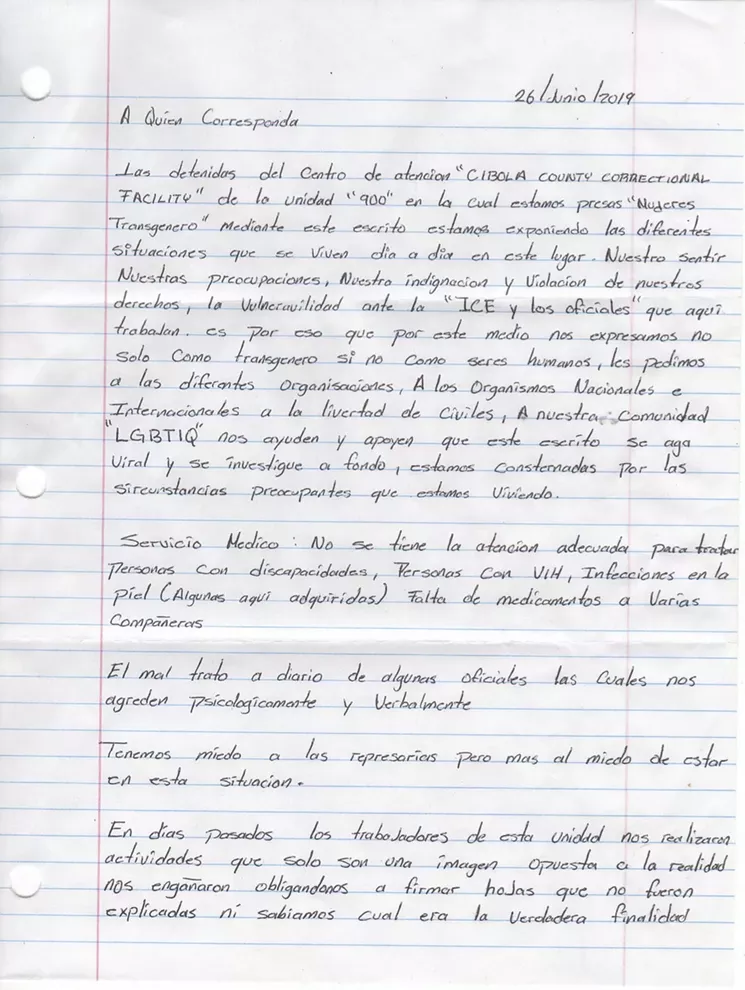 26/Junio/2019
A Quien Corresponda
Las detenidas del Centro de atencion "CIBOLA COUNTY CORRECTIONAL
FACILITY" de la unidad "900" en la cual estamos presas "Mujeres
Transgenero" Mediante este escrito estamos exponiendo las diferentes
situaciones que se viven dia a dia en este lugar. Nuestro sentir
Nuestras preocupaciones, Nuestra indignacion y Violacion de nuestros
derechos, la Vulneravilidad ante la "ICE y los oficiales" que aqui
trabajan. es por eso que por este medio nos expresamos no
solo como transgenero si no como seres humanos, les pedimos
a las diferentes organisaciones, A los Organismos Nacionales e
Internacionales a la livertad de Civiles, A nuestra Comunidad
"LGBTIQ" nos ayuden y apoyen que este escrito se aga
Viral y se investigue a fondo, estamos consternadas por las
sircunstancias preocupantes que estamos Viviendo.
Servicio Medico: No se tiene la atencion adecuada para tratar
personas con discapacidades, Personas con VIH, Infecciones en la
piel (Algunas aqui adquiridas) Falta de medicamentos a Varias
Compañeras
El mal trato a diario de algunas oficiales las Cuales nos
agreden Psicologicamente y Verbalmente
Tenemos miedo a las represarias pero mas al miedo de estar
en esta situacion.
En dias pasados los trabajadores de esta unidad nos realizaron
actividades que solo son una imagen opuesta a la realidad
nos engañaron obligandonos a firmar hojas que no fueron
explicadas ni sabiamos cual era la Verdadera finalidad